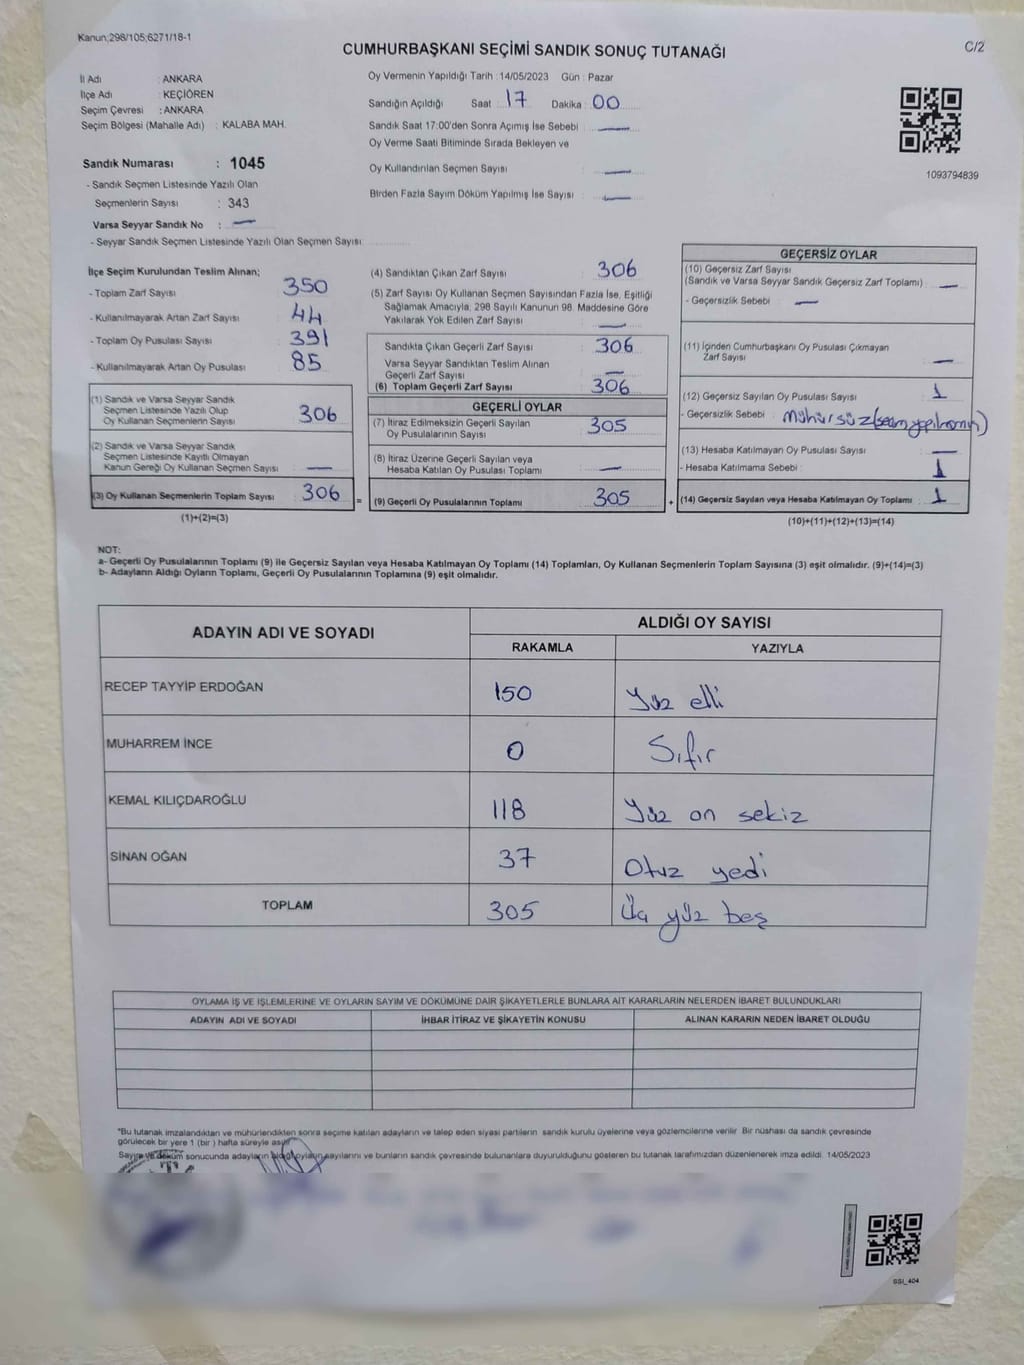 Kanun;298/105;6271/18-1
CUMHURBAŞKANI SEÇİMİ SANDIK SONUÇ TUTANAĞI
C/2
İl Adı : ANKARA
İlçe Adı : KEÇİÖREN
Seçim Çevresi : ANKARA
Seçim Bölgesi (Mahalle Adı) : KALABA MAH.
Oy Vermenin Yapıldığı Tarih : 14/05/2023 Gün : Pazar
Sandığın Açıldığı Saat : 17 Dakika : 00
Sandık Saat 17:00'den Sonra Açımış İse Sebebi : —
Oy Verme Saati Bitiminde Sırada Bekleyen ve
Oy Kullandırılan Seçmen Sayısı : —
Birden Fazla Sayım Döküm Yapılmış İse Sayısı : —
1093794839
Sandık Numarası : 1045
- Sandık Seçmen Listesinde Yazılı Olan
Seçmenlerin Sayısı : 343
Varsa Seyyar Sandık No : —
- Seyyar Sandık Seçmen Listesinde Yazılı Olan Seçmen Sayısı
İlçe Seçim Kurulundan Teslim Alınan;
- Toplam Zarf Sayısı 350
- Kullanılmayarak Artan Zarf Sayısı 44
- Toplam Oy Pusulası Sayısı 391
- Kullanılmayarak Artan Oy Pusulası 85
(1) Sandık ve Varsa Seyyar Sandık
Seçmen Listesinde Yazılı Olup
Oy Kullanan Seçmenlerin Sayısı 306
(2) Sandık ve Varsa Seyyar Sandık
Seçmen Listesinde Kayıtlı Olmayan
Kanun Gereği Oy Kullanan Seçmen Sayısı —
(3) Oy Kullanan Seçmenlerin Toplam Sayısı 306 =
(1)+(2)=(3)
(4) Sandıktan Çıkan Zarf Sayısı 306
(5) Zarf Sayısı Oy Kullanan Seçmen Sayısından Fazla İse, Eşitliği
Sağlamak Amacıyla; 298 Sayılı Kanunun 98. Maddesine Göre
Yakılarak Yok Edilen Zarf Sayısı —
Sandıkta Çıkan Geçerli Zarf Sayısı 306
Varsa Seyyar Sandıktan Teslim Alınan
Geçerli Zarf Sayısı —
(6) Toplam Geçerli Zarf Sayısı 306
GEÇERLİ OYLAR
(7) İtiraz Edilmeksizin Geçerli Sayılan
Oy Pusulalarının Sayısı 305
(8) İtiraz Üzerine Geçerli Sayılan veya
Hesaba Katılan Oy Pusulası Toplamı —
(9) Geçerli Oy Pusulalarının Toplamı 305 +
GEÇERSİZ OYLAR
(10) Geçersiz Zarf Sayısı
(Sandık ve Varsa Seyyar Sandık Geçersiz Zarf Toplamı) : —
- Geçersizlik Sebebi : —
(11) İçinden Cumhurbaşkanı Oy Pusulası Çıkmayan
Zarf Sayısı —
(12) Geçersiz Sayılan Oy Pusulası Sayısı 1
- Geçersizlik Sebebi : mühürsüz
(13) Hesaba Katılmayan Oy Pusulası Sayısı —
- Hesaba Katılmama Sebebi : 1
(14) Geçersiz Sayılan veya Hesaba Katılmayan Oy Toplamı : 1
(10)+(11)+(12)+(13)=(14)
NOT:
a- Geçerli Oy Pusulalarının Toplamı (9) ile Geçersiz Sayılan veya Hesaba Katılmayan Oy Toplamı (14) Toplamları, Oy Kullanan Seçmenlerin Toplam Sayısına (3) eşit olmalıdır. (9)+(14)=(3)
b- Adayların Aldığı Oyların Toplamı, Geçerli Oy Pusulalarının Toplamına (9) eşit olmalıdır.
ADAYIN ADI VE SOYADI
ALDIĞI OY SAYISI
RAKAMLA YAZIYLA
RECEP TAYYİP ERDOĞAN 150 Yüz elli
MUHARREM İNCE 0 Sıfır
KEMAL KILIÇDAROĞLU 118 Yüz on sekiz
SİNAN OĞAN 37 Otuz yedi
TOPLAM 305 Üç yüz beş
OYLAMA İŞ VE İŞLEMLERİNE VE OYLARIN SAYIM VE DÖKÜMÜNE DAİR ŞİKAYETLERLE BUNLARA AİT KARARLARIN NELERDEN İBARET BULUNDUKLARI
ADAYIN ADI VE SOYADI İHBAR İTİRAZ VE ŞİKAYETİN KONUSU ALINAN KARARIN NEDEN İBARET OLDUĞU
*Bu tutanak imzalandıktan ve mühürlendikten sonra seçime katılan adayların ve talep eden siyasi partilerin sandık kurulu üyelerine veya gözlemcilerine verilir. Bir nüshası da sandık çevresinde
görülecek bir yere 1 (bir ) hafta süreyle asılır.
Sayım ve döküm sonucunda adayların aldığı oyların sayılarını ve bunların sandık çevresinde bulunanlara duyurulduğunu gösteren bu tutanak tarafımızdan düzenlenerek imza edildi. 14/05/2023
SSI_404